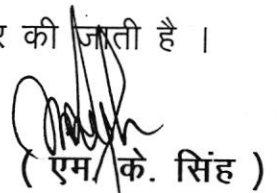 र की जाती है ।
( एम. के. सिंह )